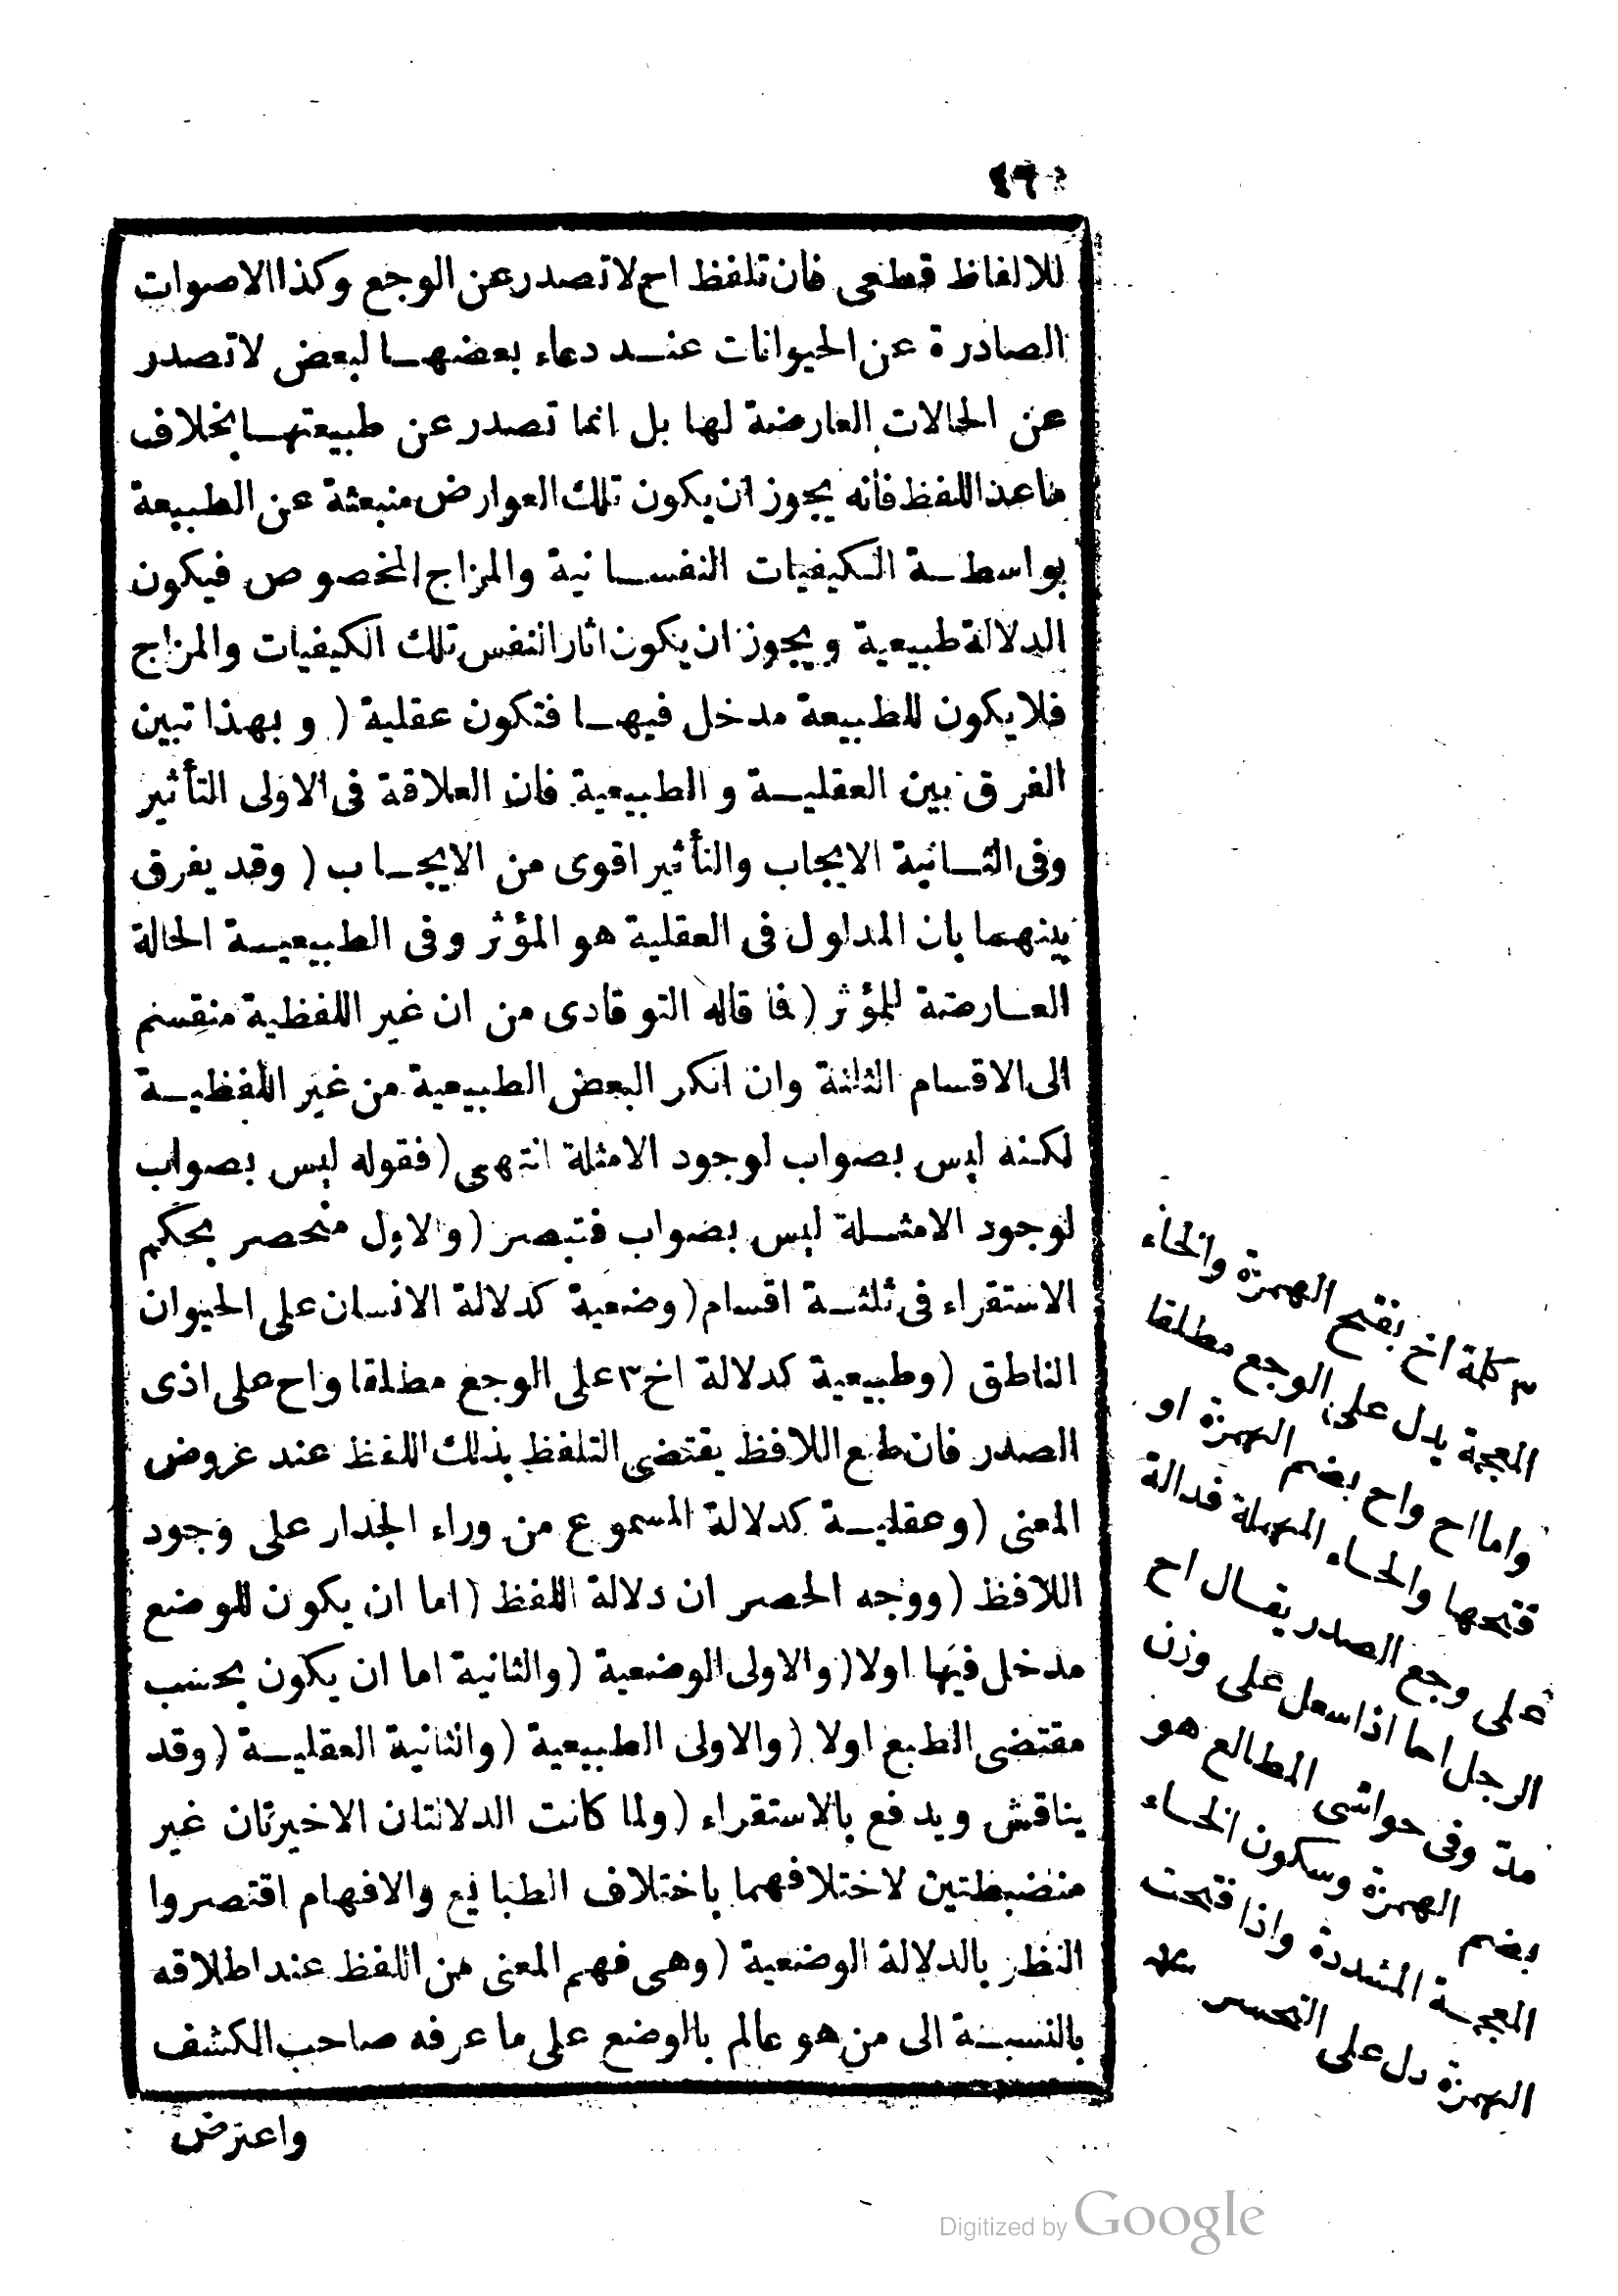 للالفاظ قطعى فان تلفظ اح لا تصدر عن الوجع وكذا الاصوات
الصادرة عن الحيوانات عند دعاء بعضها لبعض لا تصدر
عن الحالات العارضة لها بل انما تصدر عن طبيعتها بخلاف
ماعدا اللفظ فانه يجوز ان يكون تلك العوارض منبعثة عن الطبيعة
بواسطة الكيفيات النفسانية والمزاج المخصوص فيكون
الدلالة طبيعية ويجوز ان يكون اثار النفس تلك الكيفيات والمزاج
فلا يكون للطبيعة مدخل فيها فتكون عقلية ( وبهذا تبين
الفرق بين العقلية والطبيعية فان العلاقة فى الاولى التأثير
وفى الثانية الايجاب والتأثير اقوى من الايجاب ( وقد يفرق
بينهما بان المدلول فى العقلية هو المؤثر وفى الطبيعية الحالة
العارضة للمؤثر ( فما قاله التوقادى من ان غير اللفظية منقسم
الى الاقسام الثلثة وان انكر البعض الطبيعية من غير اللفظية
لكنه ليس بصواب لوجود الامثلة انتهى ( فقوله ليس بصواب
لوجود الامثلة ليس بصواب فتبصر ( والاول منحصر بحكم
الاستقراء فى ثلثة اقسام ( وضعية كدلالة الانسان على الحيوان
الناطق ( وطبيعية كدلالة اخ ٣ على الوجع مطلقا واح على اذى
الصدر فان طبع اللافظ يقتضى التلفظ بذلك اللفظ عند عروض
المعنى ( وعقلية كدلالة المسموع من وراء الجدار على وجود
اللافظ ( ووجه الحصر ان دلالة اللفظ ( اما ان يكون للوضع
مدخل فيها اولا ( والاولى الوضعية ( والثانية اما ان يكون بحسب
مقتضى الطبع اولا ( والاولى الطبيعية ( والثانية العقلية ( وقد
يناقش ويدفع بالاستقراء ( ولما كانت الدلالتان الاخيرتان غير
منضبطتين لاختلافهما باختلاف الطبايع والافهام اقتصروا
النظر بالدلالة الوضعية ( وهى فهم المعنى من اللفظ عند اطلاقه
بالنسبة الى من هو عالم بالوضع على ما عرفه صاحب الكشف
واعترض
٣ كلمة اخ بفتح الهمزة والخاء
المعجمة يدل على الوجع مطلقا
واما اح واح بضم الهمزة او
فتحها والحاء المهملة فدالة
على وجع الصدر يقال اح
الرجل احا اذا سعل على وزن
مد وفى حواشى المطالع هو
بضم الهمزة وسكون الخاء
المعجمة المشددة واذا فتحت
الهمزة دل على التحسر
Digitized by Google